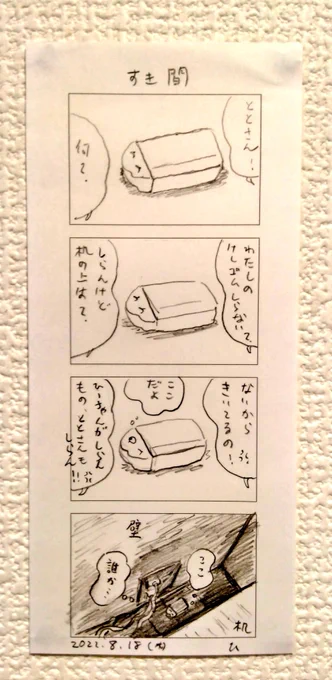 すき間
ととさん！
何て。
わたしの
けしゴムしらないで。
しらんけど
机の上は？
ないから
きいてるの！
ここ
だよ
ひーちゃんが
もの、ととさんも
しらん！！
壁
ここ
誰か…
机
2022.8.18(木)
ひ